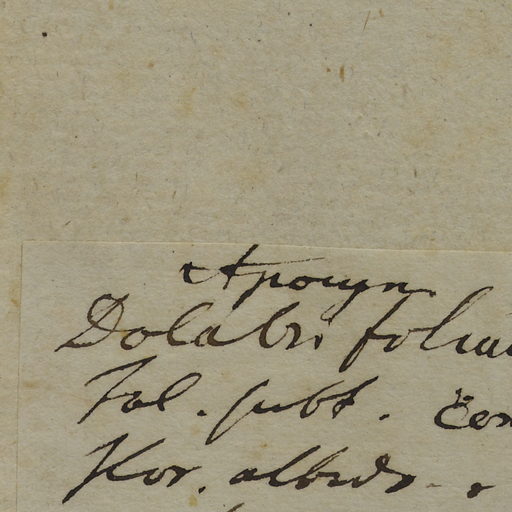 Apocyn
Dolabri folia
Fol. subt.
Flor. albid